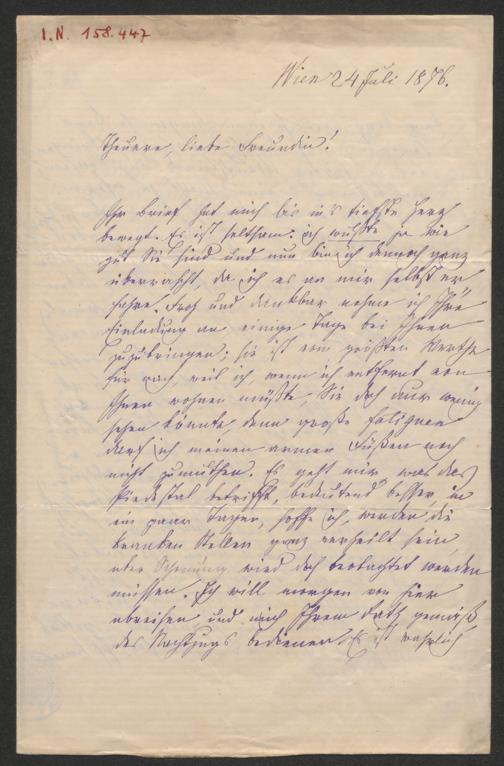 I.N. 158.447
Wien 24 Juli 1876.
Theuere, liebe Freundin!
Ihr Brief hat mich bis in's tiefste Herz
bewegt. Es ist seltsam: ich wußte ja wie
gut Sie sind und nun bin ich dennoch ganz
überrascht, da ich es an mir selbst er
fahre. Froh und dankbar nehme ich Ihre
Einladung an einige Tage bei Ihnen
zuzubringen; sie ist vom größten Werthe
für mich, weil ich, wenn ich entfernt von
Ihnen wohnen müßte, Sie doch nur wenig
sehen könnte denn große Fatiguen
darf ich meinen armen Füßen noch
nicht zumuthen. Es geht mir, was das
Piedestal betrifft, bedeutend besser, in
ein paar Tagen, hoffe ich, werden die
kranken Stellen ganz verheilt sein
aber Schonung wird doch beobachtet werden
müssen. Ich will morgen von hier
abreisen und mich Ihrem Rath gemäß
des Nachtzugs bedienen. Es ist wahrlich